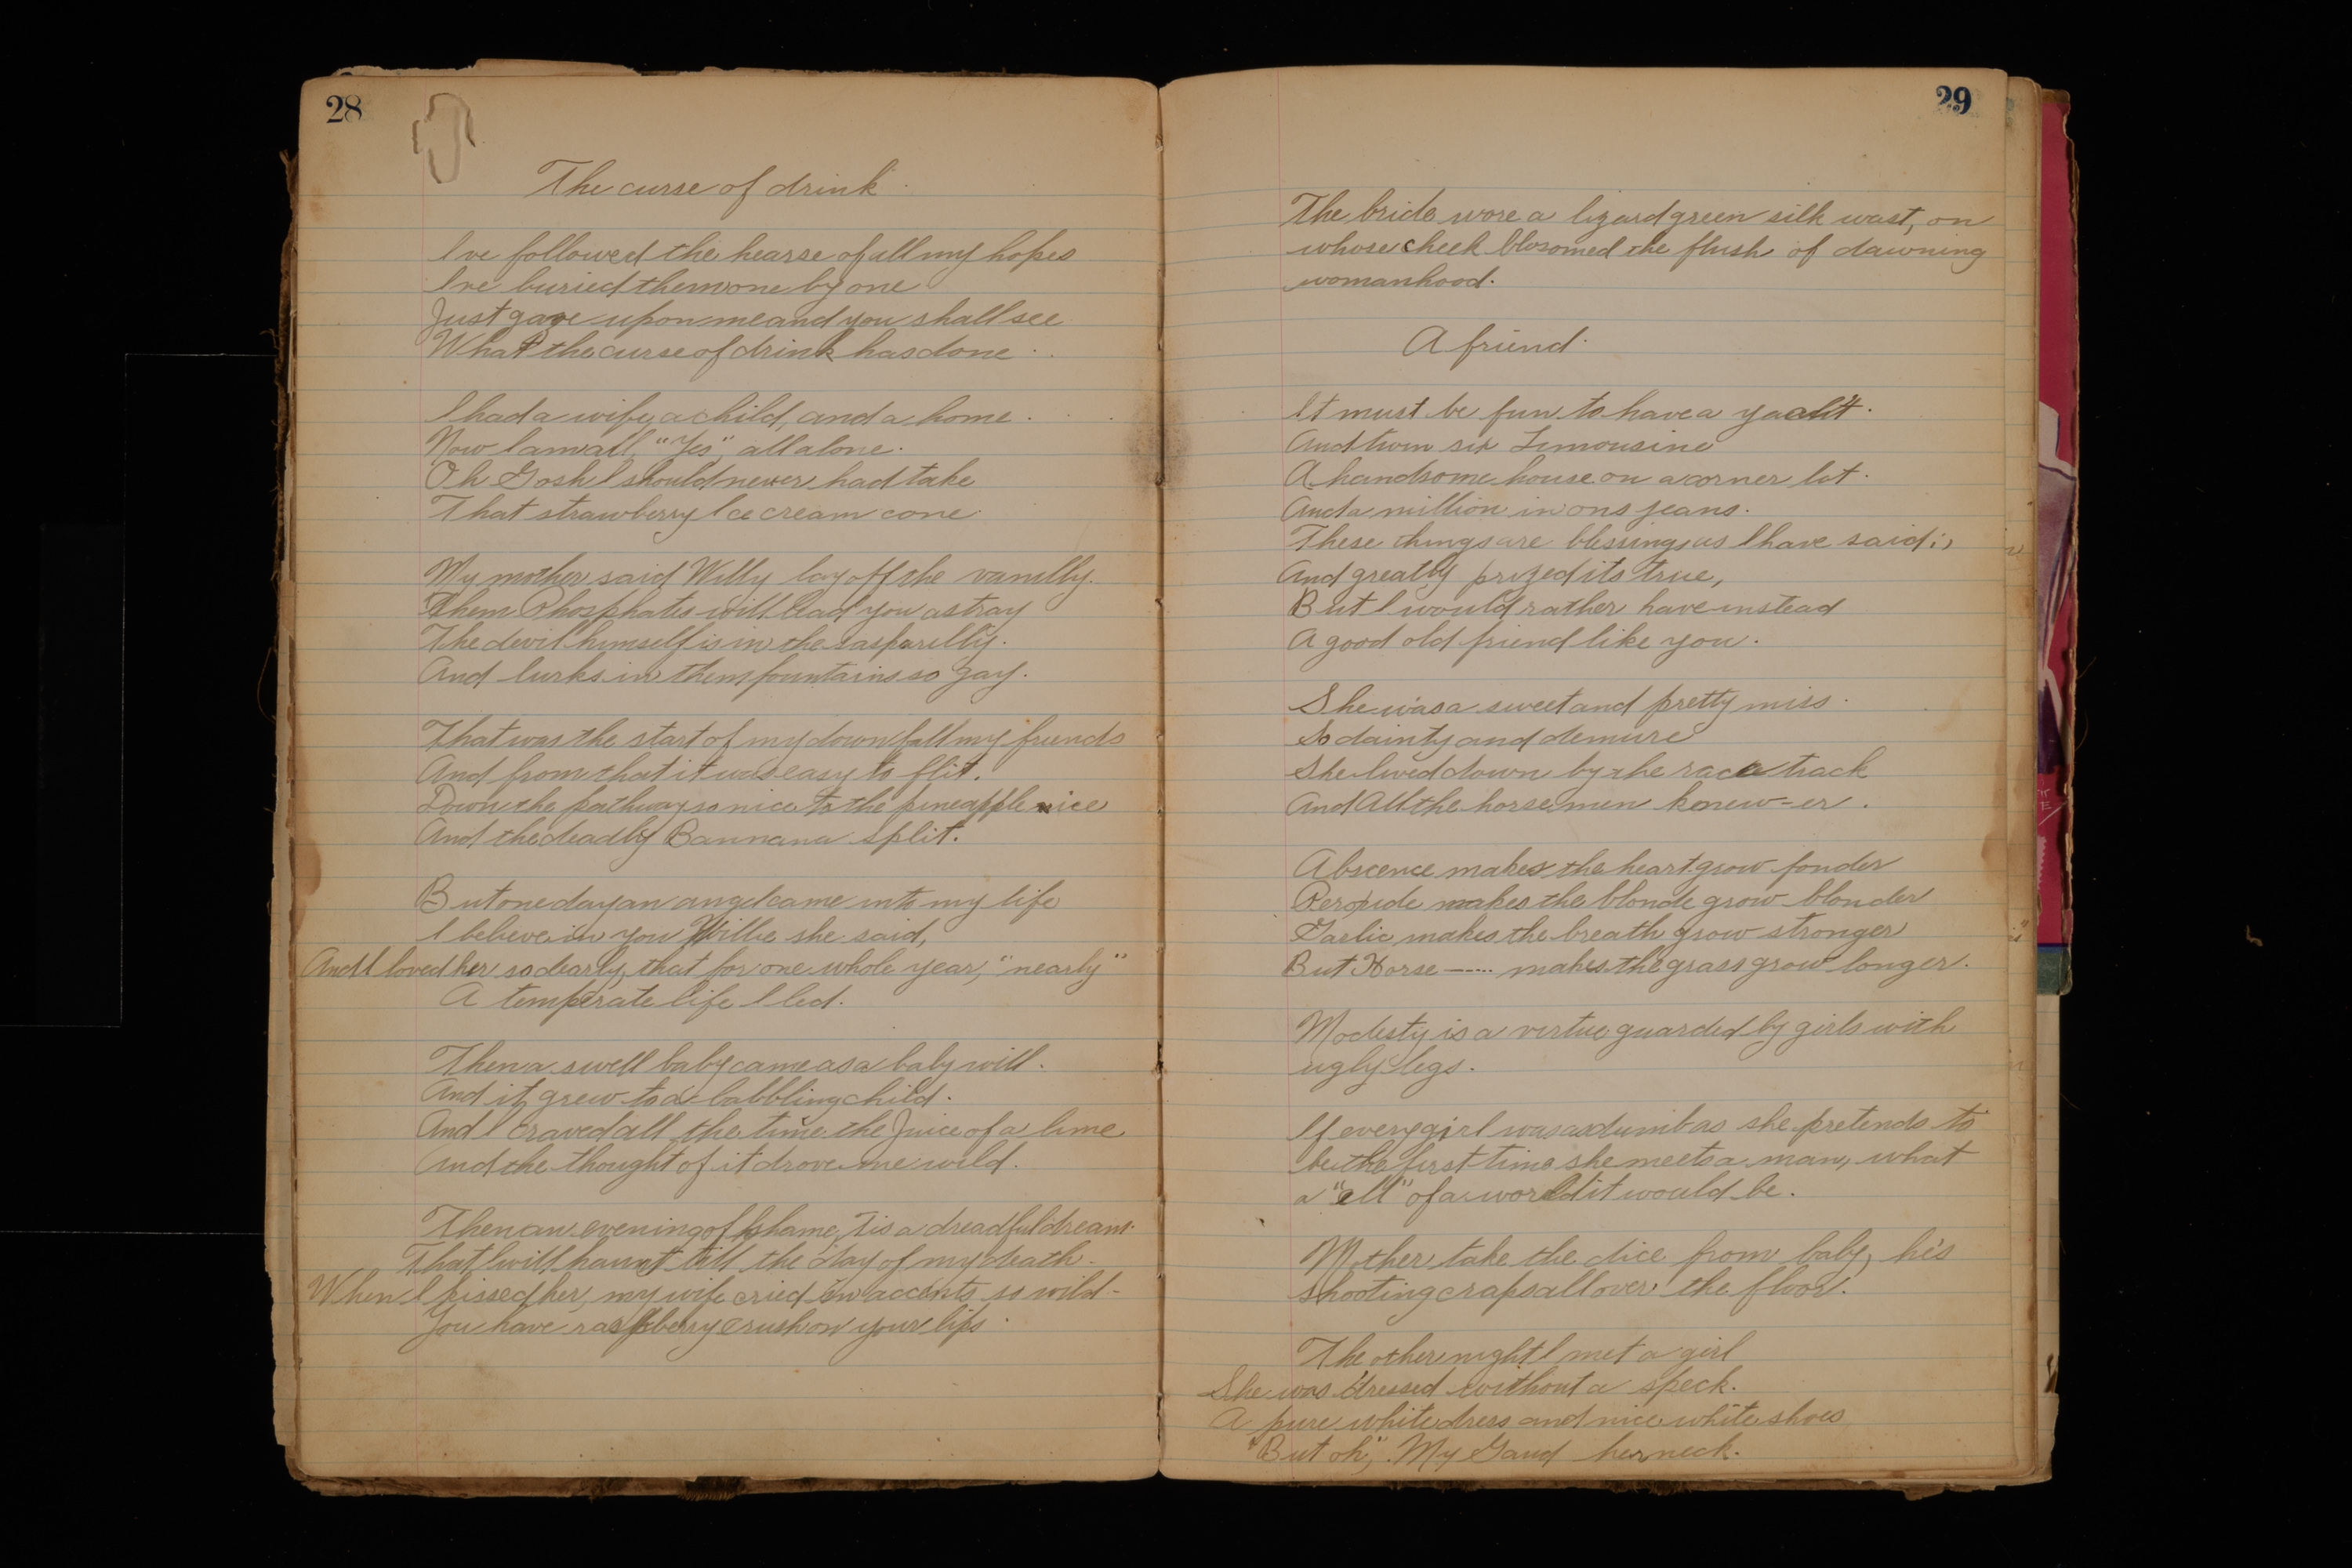 28
The curse of drink
I've followed the hearse of all my hopes
I've buried them one by one
Just gaze upon me and you shall see
What the curse of drink has done.
I had a wife, a child, and a home.
Now I am all, "Yes", all alone.
Oh Gosh I should never had take
That strawberry Ice cream cone.
My mother said Willy lay off the vanilly.
Them Phosphates will lead you astray
The devil himself is in the sasparilly.
And lurks in them fountains so gay.
That was the start of my downfall my friends
And from that it was easy to flit.
Down the pathway so nice to the pineapple ice
And the deadly Bannana split.
But one day an angel came into my life
I believe in you Willie she said,
And I loved her so dearly, that for one whole year, "nearly"
A temperate life I led.
Then a swell baby came as a baby will.
And it grew to a babbling child.
And I craved all the time the Juice of a lime
And the thought of it drove me wild.
Then an evening of shame, Tis a dreadful dream.
That will haunt till the day of my death.
When I kissed her, my wife cried in accents so wild-
You have raspberry crush on your lips.
29
The bride wore a lizard green silk wast, on
whose cheek blosomed the flush of dawning
womanhood.
A friend.
It must be fun to have a yacht.
And twin six Limousine
A handsome house on a corner lot.
And a million in ons jeans.
These things are blessings, as I have said;
And greatly prized its true,
But I would rather have instead
A good old friend like you.
She was a sweet and pretty miss.
So dainty and demure
She lived down by the race track
And All the horsemen knew-er.
Abscence makes the heart grow fonder
Peroxide makes the blonde grow blonder
Garlic makes the breath grow stronger
But Horse ----- makes the grass grow longer.
Modesty is a virtue guarded by girls with
ugly legs.
If every girl was as dumb as she pretends to
be the first time she meets a man, what
a "ell" of a world it would be.
Mother take the dice from baby, he's
shooting craps all over the floor.
The other night I met a girl
She was dressed without a speck.
A pure white dress and nice white shoes
"But oh", My Gaud her neck.